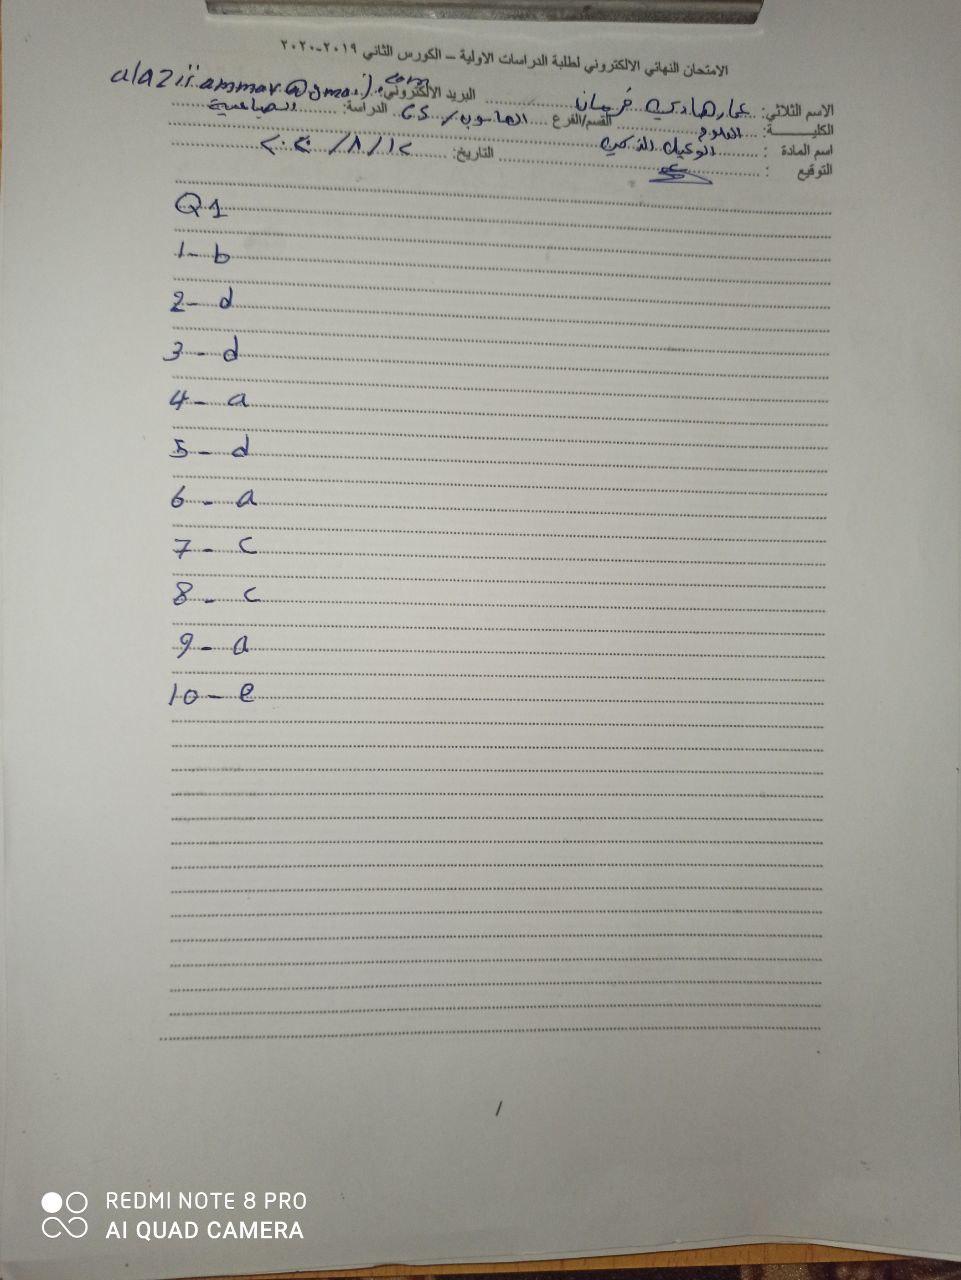 الامتحان النهائي الالكتروني لطلبة الدراسات الاولية – الكورس الثاني ٢٠١٩-٢٠٢٠
الاسم الثلاثي: عمار هادي فرحان البريد الالكتروني: alaziiammar@gmail.com
الكليـــــة : العلوم القسم/الفرع الحاسوب/CS الدراسة: الصباحية
اسم المادة : الوكيل الذكي التاريخ: ٢٠٢٠/٨/١٢
التوقيع :
Q1
1- b
2- d
3- d
4- a
5- d
6- a
7- c
8- c
9- a
10- e
/
REDMI NOTE 8 PRO
AI QUAD CAMERA